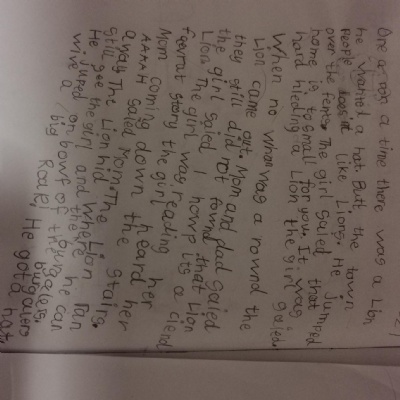 One a-pon a time there was a Lion
he wanted a hat. But the town
People does'nt like Lions. He Jumped
over the fence. The girl saied that
home is to small for you. It was
hard hieding a Lion the girl saied.
When no whon was a round the
Lion came out. Mom and dad saied
they still did not found that Lion
the girl saied I howp its a ciend
Lion. The girl was reading her
feevrat story the girl heard
Mom coming down the stairs.
AAAAH saied Mom. The Lion ran
aways The Lion hid.
still
He see the girl and where he can
winured on bowf of the burgalers.
a big Roaer. He got a hat